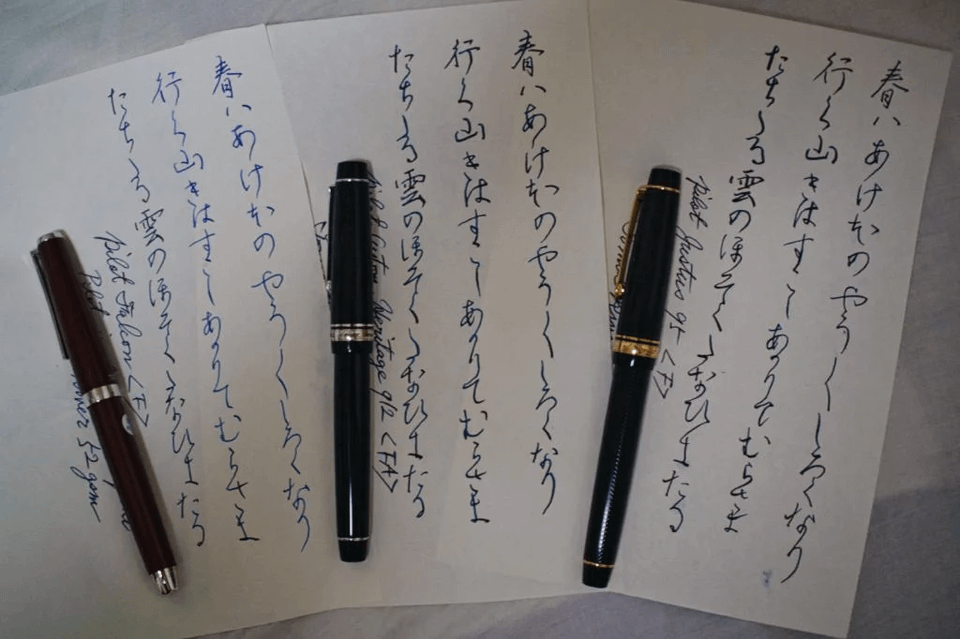 春ハあけほのやう〳〵しろくなり
行く山きはすこしあかりてむらさき
たちたる雲のほそくたなひきたる
Pilot Justus 95 <F>
春ハあけほのやう〳〵しろくなり
行く山きはすこしあかりてむらさき
たちたる雲のほそくたなひきたる
Pilot Custom Heritage 912 <FA>
春ハあけほのやう〳〵しろくなり
行く山きはすこしあかりてむらさき
たちたる雲のほそくたなひきたる
Pilot Falcon <F>
52 gsm